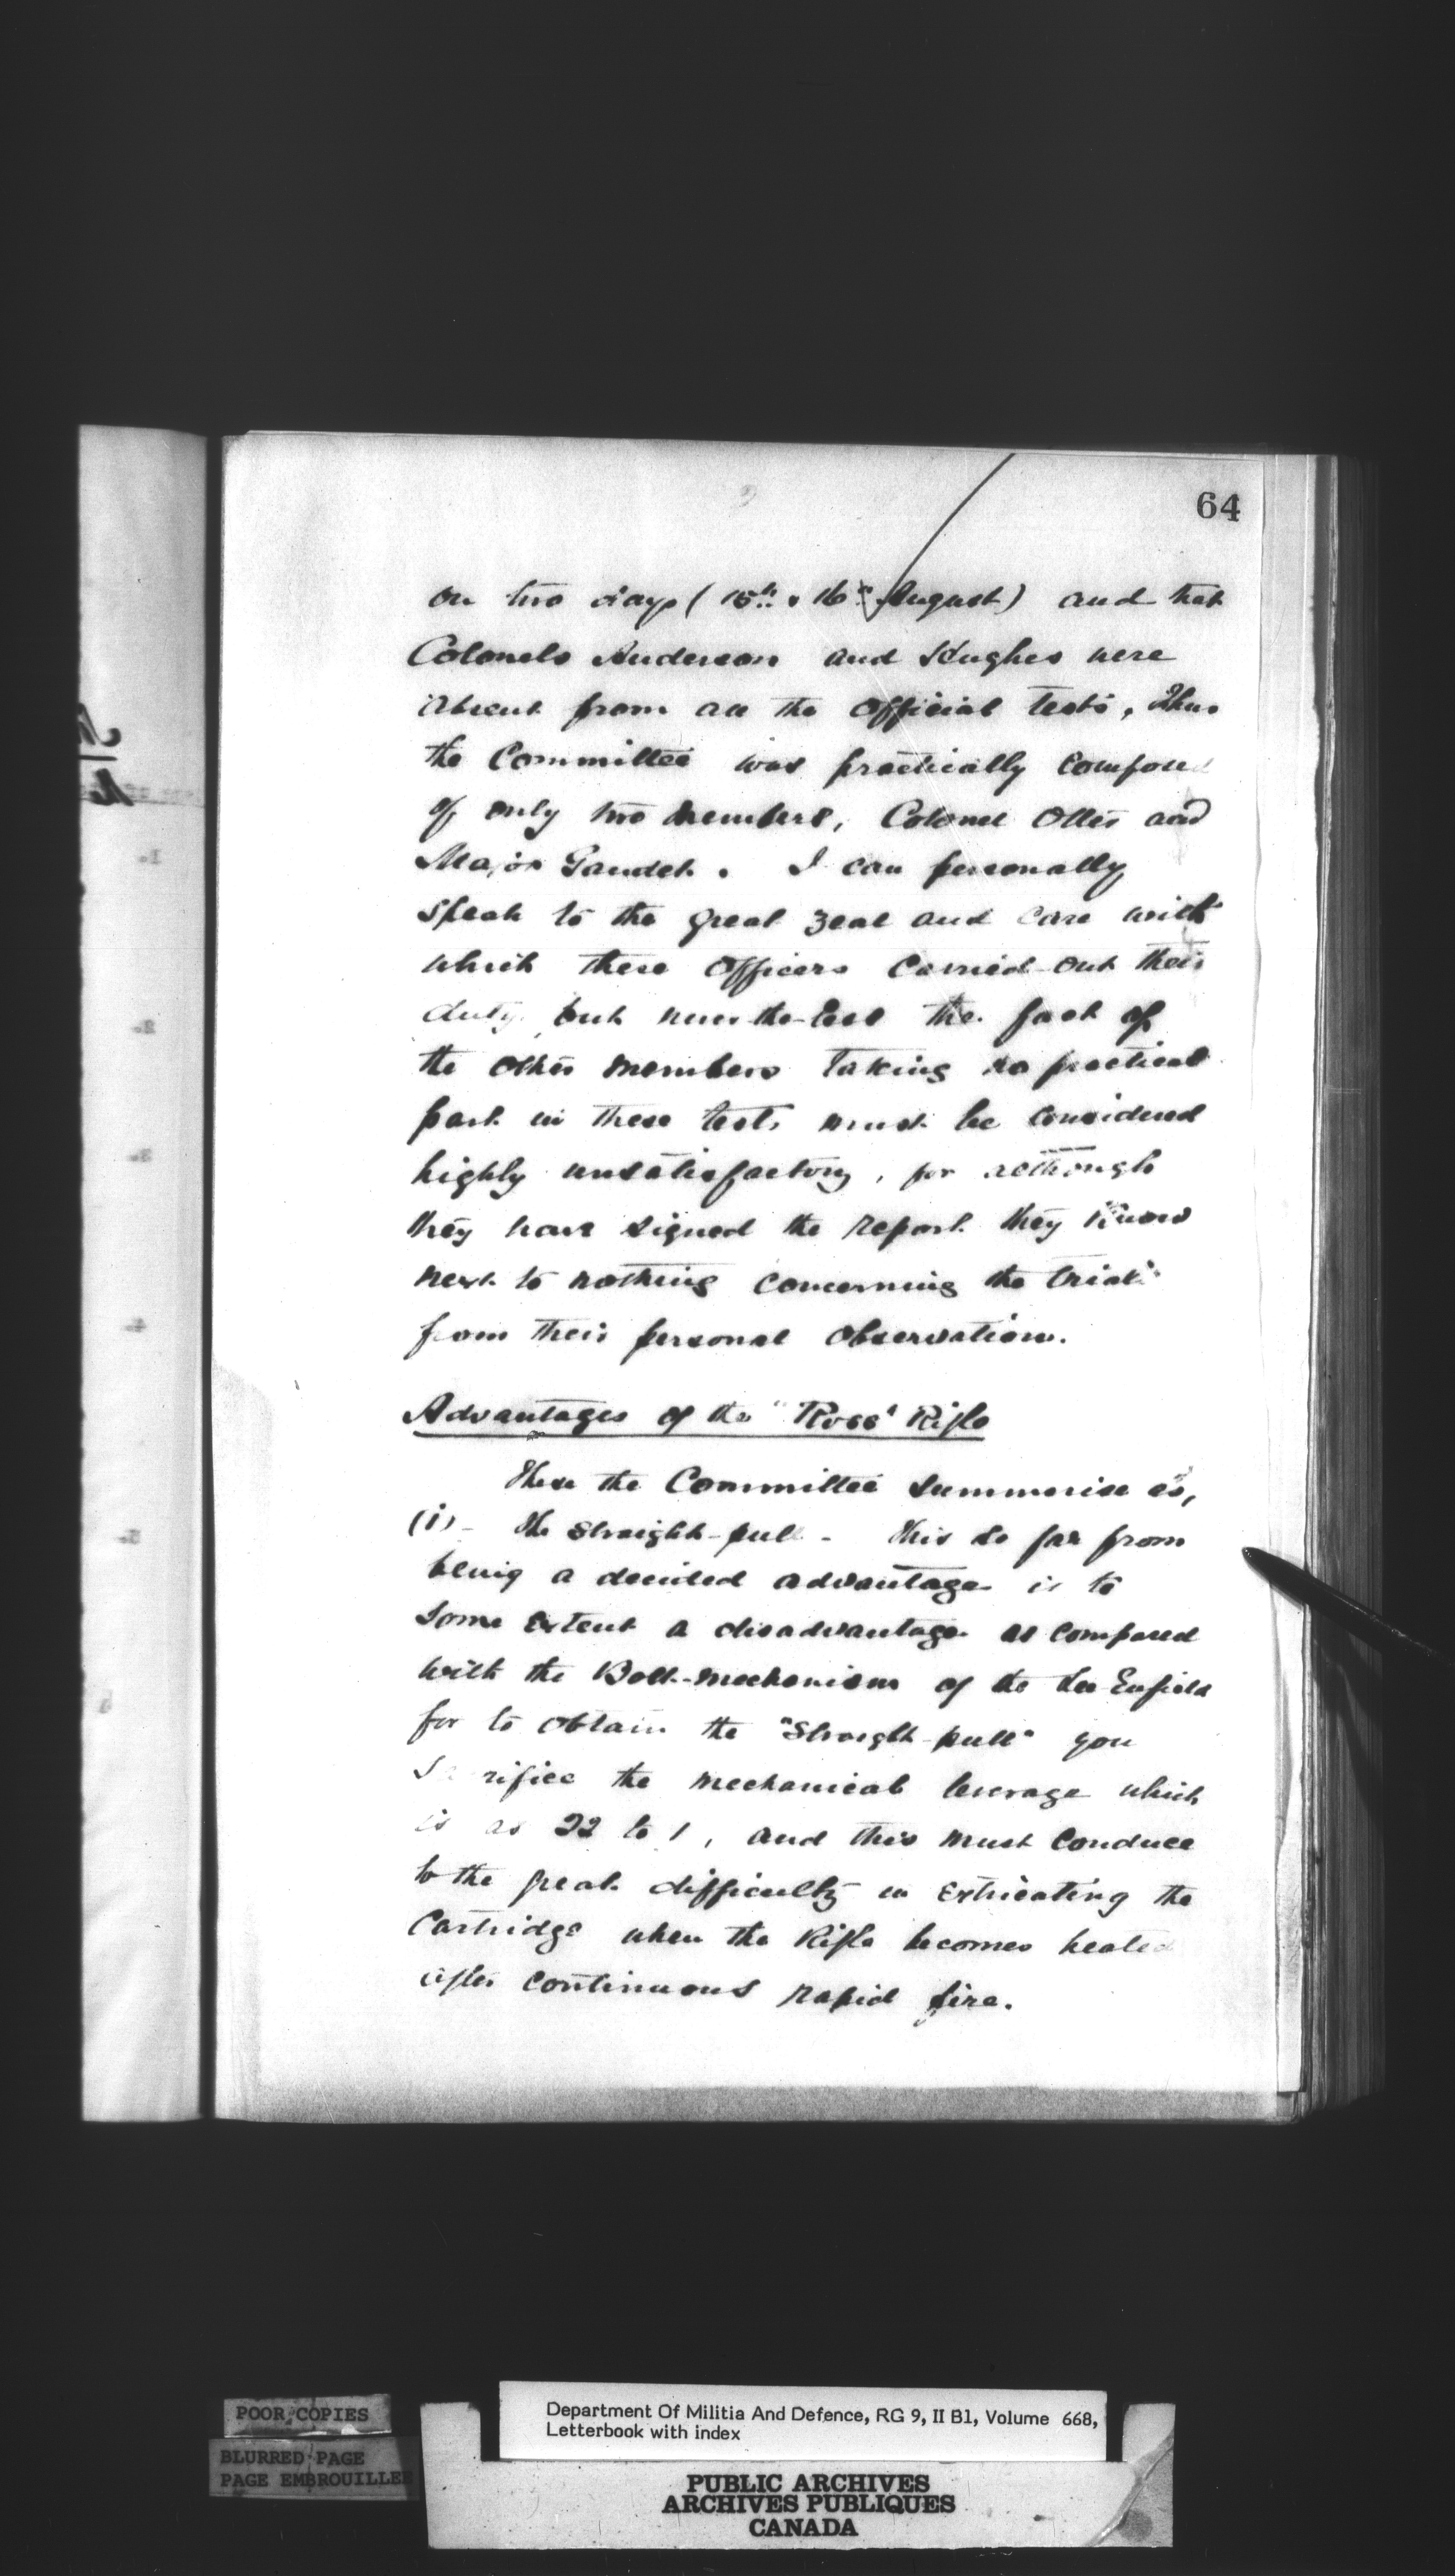 64
on two days (15th & 16th August) and that
Colonels Anderson and Hughes were
absent from all the official tests, Thus
the Committee was practically composed
of only two members, Colonel Otter and
Major Gaudet. I can personally
speak to the great zeal and care with
which these Officers carried out their
duty, but never-the-less the fact of
the other members taking no practical
part in these tests must be considered
highly unsatisfactory, for although
they have signed the report they know
next to nothing concerning the trials
from their personal observation.
Advantages of the "Ross" Rifle
These the Committee summarise as,
(i) - The straight-pull - This so far from
being a decided advantage is to
some extent a disadvantage as compared
with the Bolt-mechanism of the Lee-Enfield
for to obtain the "Straight-pull" you
sacrifice the mechanical leverage which
is as 22 to 1, and this must conduce
to the great difficulty in extricating the
Cartridge when the Rifle becomes heated
after continuous rapid fire.
1.
2.
3.
4.
5.
POOR COPIES
BLURRED PAGE
PAGE EMBROUILLEE
Department Of Militia And Defence, RG 9, II B1, Volume 668,
Letterbook with index
PUBLIC ARCHIVES
ARCHIVES PUBLIQUES
CANADA